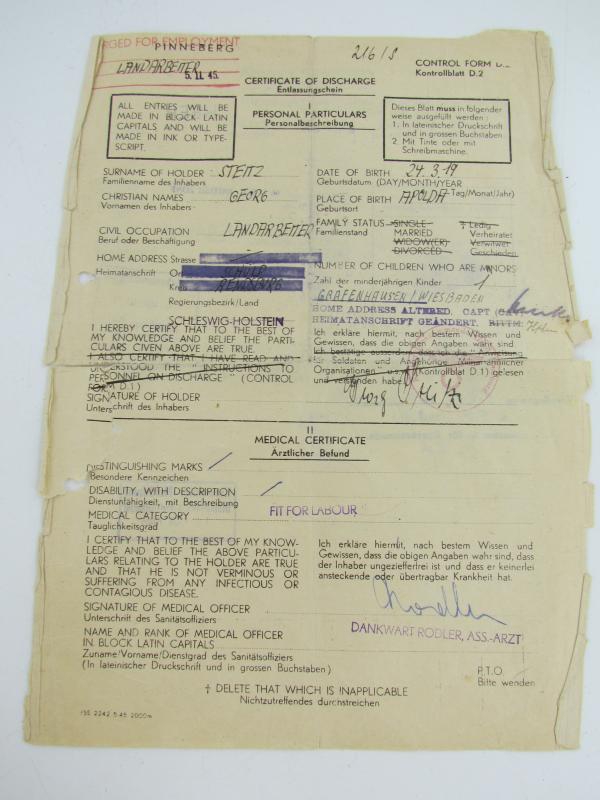 RGED FOR EMPLOYMENT
PINNEBERG
216/S
CONTROL FORM D.
Kontrollblatt D.2
LANDARBEITER
5. 11. 45.
CERTIFICATE OF DISCHARGE
Entlassungschein
I
PERSONAL PARTICULARS
Personalbeschreibung
ALL ENTRIES WILL BE
MADE IN BLOCK LATIN
CAPITALS AND WILL BE
MADE IN INK OR TYPE-
SCRIPT.
Dieses Blatt muss in folgender
weise ausgefüllt werden:
1. In lateinischer Druckschrift
und in grossen Buchstaben
2. Mit Tinte oder mit
Schreibmaschine.
SURNAME OF HOLDER STEITZ
Familienname des Inhabers
CHRISTIAN NAMES GEORG
Vornamen des Inhabers
CIVIL OCCUPATION LANDARBEITER
Beruf oder Beschäftigung
HOME ADDRESS Strasse
Heimatanschrift Ort
Kreis RENDSBURG
Regierungsbezirk/Land
SCHLESWIG-HOLSTEIN
DATE OF BIRTH 24.3.19
Geburtsdatum (DAY/MONTH/YEAR
Tag/Monat/Jahr)
PLACE OF BIRTH APOLDA
Geburtsort
FAMILY STATUS — SINGLE † Ledig
Familienstand MARRIED Verheiratet
WIDOW(ER) Verwitwet
DIVORCED Geschieden
NUMBER OF CHILDREN WHO ARE MINORS
Zahl der minderjährigen Kinder 1
GRÄFENHAUSEN/WIESBADEN
HOME ADDRESS ALTERED, CAPT
HEIMATANSCHRIFT GEÄNDERT, RITTM:
I HEREBY CERTIFY THAT TO THE BEST OF
MY KNOWLEDGE AND BELIEF THE PARTI-
CULARS GIVEN ABOVE ARE TRUE.
I ALSO CERTIFY THAT I HAVE READ AND
UNDERSTOOD THE "INSTRUCTIONS TO
PERSONNEL ON DISCHARGE" (CONTROL
FORM D.1)
SIGNATURE OF HOLDER
Unterschrift des Inhabers
Ich erkläre hiermit, nach bestem Wissen und
Gewissen, dass die obigen Angaben wahr sind.
Ich bestätige ausserdem dass ich die "Anweisung
für Soldaten und Angehörige Militär-ähnlicher
Organisationen" u.s.w. (Kontrollblatt D.1) gelesen
und verstanden habe.
Georg Steitz
II
MEDICAL CERTIFICATE
Ärztlicher Befund
DISTINGUISHING MARKS /
Besondere Kennzeichen
DISABILITY, WITH DESCRIPTION /
Dienstunfähigkeit, mit Beschreibung
MEDICAL CATEGORY FIT FOR LABOUR
Tauglichkeitsgrad
I CERTIFY THAT TO THE BEST OF MY KNOW-
LEDGE AND BELIEF THE ABOVE PARTICU-
LARS RELATING TO THE HOLDER ARE TRUE
AND THAT HE IS NOT VERMINOUS OR
SUFFERING FROM ANY INFECTIOUS OR
CONTAGIOUS DISEASE.
Ich erkläre hiermit, nach bestem Wissen und
Gewissen, dass die obigen Angaben wahr sind, dass
der Inhaber ungezieferfrei ist und dass er keinerlei
ansteckende oder übertragbar Krankheit hat.
SIGNATURE OF MEDICAL OFFICER Rodler
Unterschrift des Sanitätsoffiziers
DANKWART RODLER, ASS.-ARZT
NAME AND RANK OF MEDICAL OFFICER
IN BLOCK LATIN CAPITALS
Zuname/Vorname/Dienstgrad des Sanitätsoffiziers
(In lateinischer Druckschrift und in grossen Buchstaben)
P.T.O.
Bitte wenden
† DELETE THAT WHICH IS INAPPLICABLE
Nichtzutreffendes durchstreichen
PSS 2242 5.45 2000m